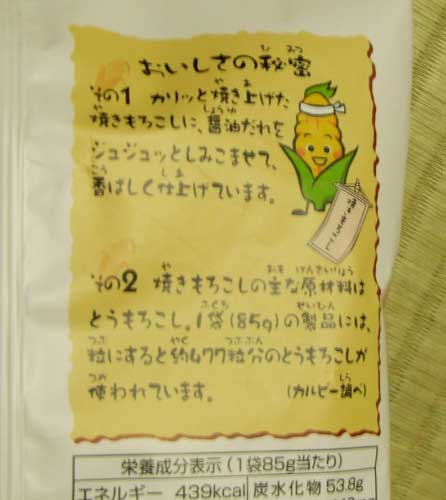 おいしさの秘密
その1 カリッと焼き上げた
焼きもろこしに、醤油だれを
ジュジュッとしみこませて、
香ばしく仕上げています。
焼きもろこし
その2 焼きもろこしの主な原材料は
とうもろこし。1袋(85g)の製品には、
粒にすると約477粒分のとうもろこしが
使われています。 (カルビー調べ)
栄養成分表示(1袋85g当たり)
エネルギー 439kcal 炭水化物 53.8g